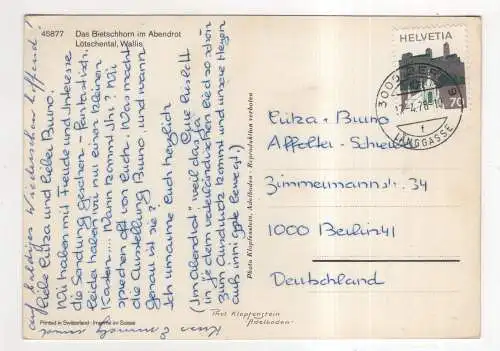 45877 Das Bietschhorn im Abendrot
Lötschental, Wallis
HELVETIA
70
3000 BERN
LÄNGGASSE
auf baldiges Wiedersehen hoffend!
Liebe Luza und lieber Bruno.
Wir haben mit Freude und Interesse
die Sendung gesehen - Fantastisch.
Leider haben wir nur einen kleinen
Kasten.... Wann kommt Ihr? Wir
sprechen oft von Euch. Was macht
die Ausstellung Bruno, und wann
genau ist sie?
Ich umarme Euch herzlich
Eure
("im Abendrot" weil das
in je dem vaterländischen lied so schön
zum Ausdruck kommt und unsere Herzen
auf innigste bewegt!)
Photo Klopfenstein, Adelboden - Reproduktion verboten
Luza + Bruno
Affolter-
Zimmermannstr. 34
1000 Berlin 41
Deutschland
Printed in Switzerland - Imprimé en Suisse
Phot Klopfenstein
Adelboden